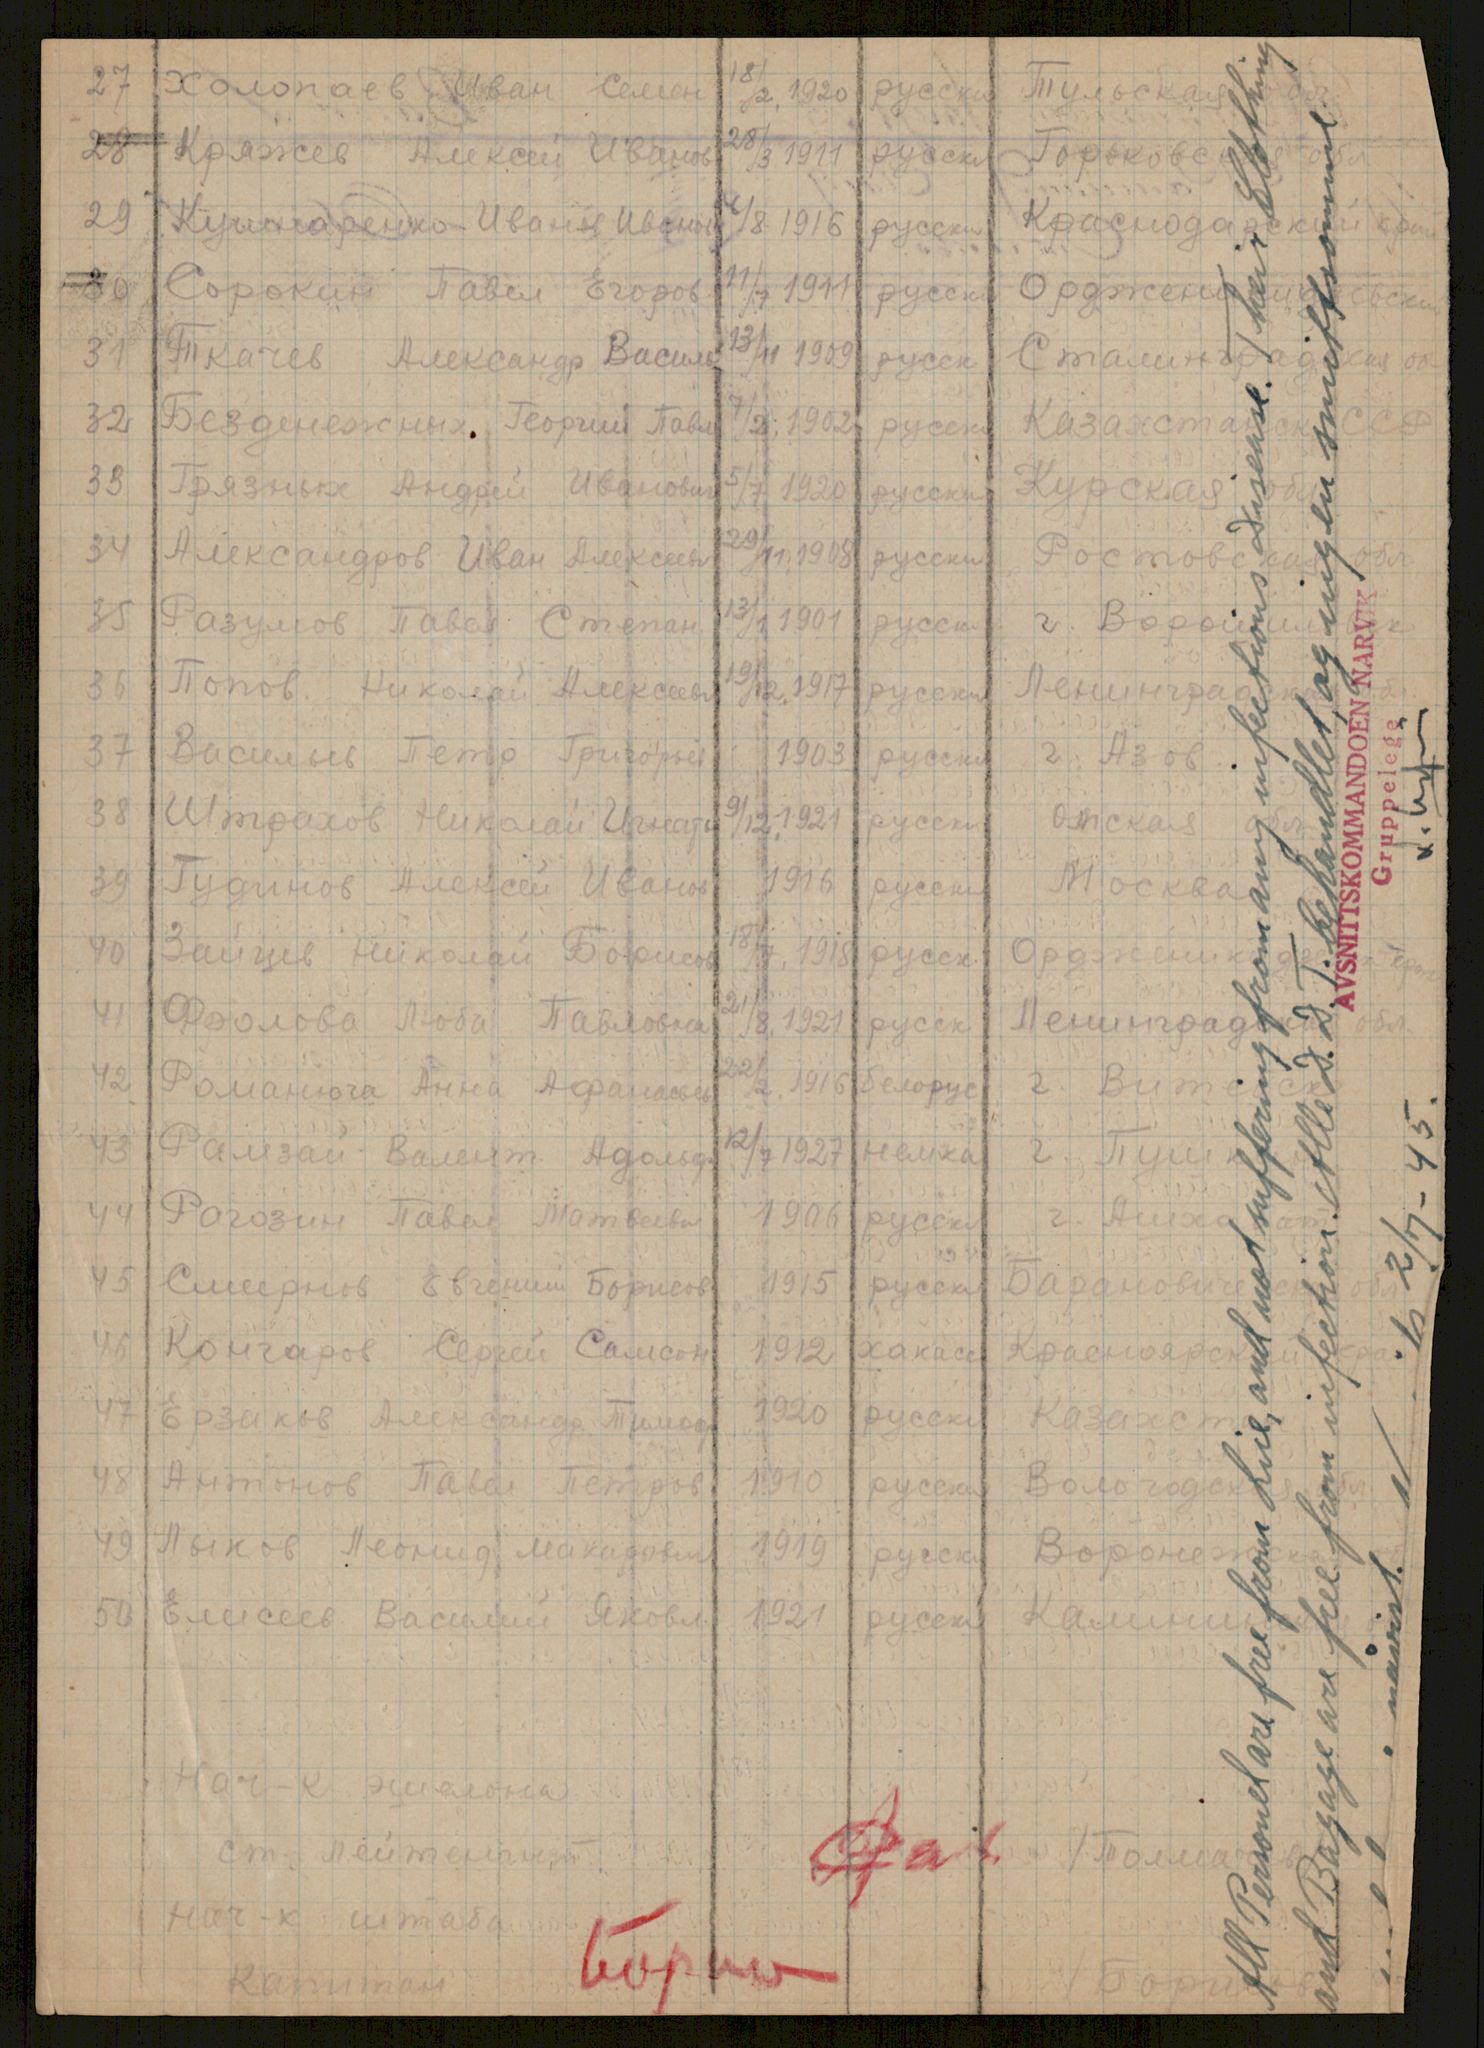 27 Холопаев Иван Семен 18/2. 1920 русски Тульская обл.
28 Кряжев Алексей Иванов 28/3 1911 русски Горьковская обл
29 Кушнаренко Иван Иванов /8 1916 русски Краснодарский край
30 Сорокин Павел Егоров 11/7 1911 русски
31 Ткачев Александр Василь 13/11 1909 русск Сталинградская об
32 Безденежных Георгий Павл 7/2. 1902 русски Казахстанск ССР
33 Грязных Андрей Иванович 5/7 1920 русски Курская обл
34 Александров Иван Алексеев 29/11. 1908 русски Ростовская обл
35 Разумов Павел Степан 13/1 1901 русски г.
36 Попов Николай Алексеев 19/12. 1917 русски Ленинградская обл.
37 Васильев Петр Григорьев 1903 русски г. Азов
38 Штрахов Николай Игнать 9/12. 1921 русски Омская обл.
39 Гудинов Алексей Иванов 1916 русски Москва
40 Зайцев Николай Борисов 18/7. 1918 русск
41 Фролова Люба Павловна 21/8. 1921 русск Ленинградская обл.
42 Романюга Анна Афанасьев 22/2. 1916 белорус г. Витебск
43 Рамзай Валент. Адольф 12/7 1927 немка г.
44 Рагозин Павел Матвеев 1906 русски г.
45 Смирнов Евгений Борисов 1915 русски обл
46 Кончаров Сергей Самсон 1912 хакасс Красноярский край
47 Ерзаков Александр Тимоф 1920 русски Казахст
48 Антонов Павел Петров 1910 русски Вологодская обл.
49 Лыков Леонид Макарови 1919 русски Воронежска
50 Елисеев Василий Яковл 1921 русски
Нач-к эшелона
ст. лейтенант
Нач-к штаба
Капитан
All Personel are free from lise, and not suffering from any infections disease. Their Clothing
and Bagage are free from infection. Alle D.D.T. behandlet, og ingen smittsomme
AVSNITTSKOMMANDOEN NARVIK
Gruppelege
2/7-45.